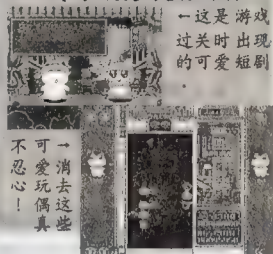 ←这是游戏
过关时出现
的可爱短剧
。
→消去这些
可爱玩偶真
不忍心！